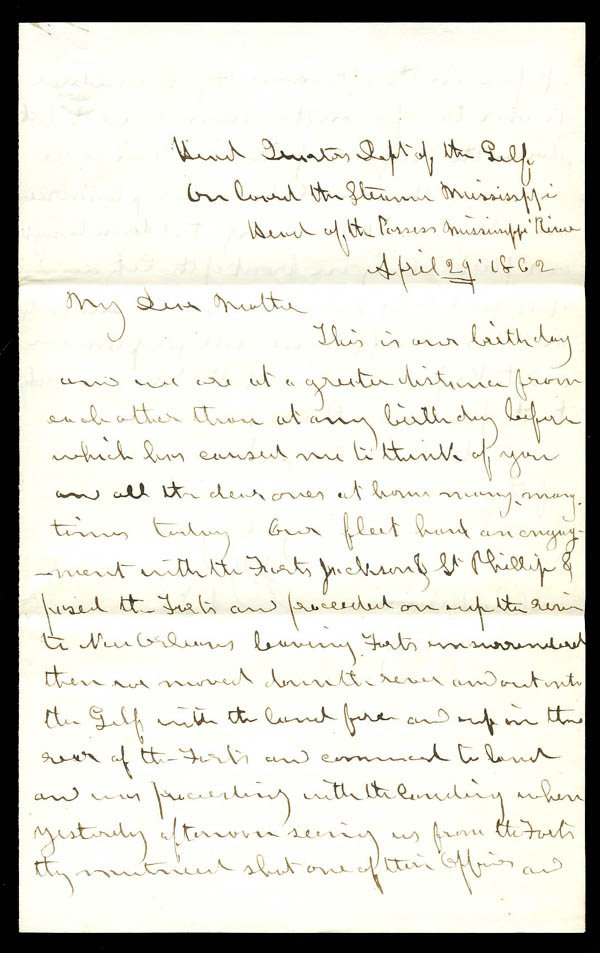 Head Quarters Dept of the Gulf,
On board the Steamer Mississippi
Head of the Passes Mississippi River
April 29. 1862
My Dear Mother
This is our birthday
and we are at a greater distance from
each other than at any birthday before
which has caused me to think of you
and all the dear ones at home many, many
times today Our fleet had an engag-
-ment with the Forts Jackson & St Phillip &
passed the Forts and proceeded on up the river
to New Orleans leaving Forts unsurrendered
then we moved down the river and out into
the Gulf with the land force and up in the
rear of the Forts and commenced to land
and was proceeding with the landing when
yesterday afternoon seeing us from the Forts
they mutinied shot one of their Officers and